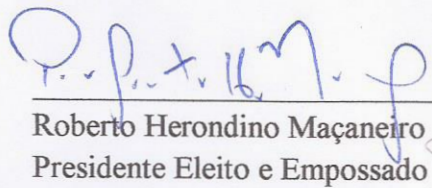 Roberto Herondino Maçaneiro
Presidente Eleito e Empossado